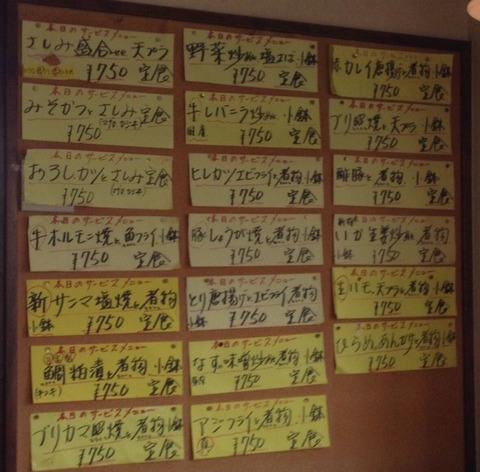 本日のサービスメニュー
さしみ盛合せと天プラ
¥750 定食
本日のサービスメニュー
みそかつとさしみ定食
¥750
本日のサービスメニュー
おろしカツとさしみ定食
¥750
本日のサービスメニュー
牛ホルモン焼と魚フライ小鉢
¥750 定食
本日のサービスメニュー
新サンマ塩焼と煮物
小鉢 ¥750 定食
本日のサービスメニュー
鯛粕漬と煮物小鉢
¥750 定食
本日のサービスメニュー
ブリカマ照焼と煮物小鉢
¥750 定食
本日のサービスメニュー
野菜炒めと塩さば小鉢
¥750 定食
本日のサービスメニュー
牛レバニラ炒めと小鉢
国産 ¥750 定食
本日のサービスメニュー
ヒレカツエビフライと煮物小鉢
¥750 定食
本日のサービスメニュー
豚しょうが焼と煮物小鉢
¥750 定食
本日のサービスメニュー
とり唐揚とエビフライ煮物
小鉢 ¥750 定食
本日のサービスメニュー
なすの味噌炒めと煮物小鉢
¥750 定食
本日のサービスメニュー
アジフライと煮物小鉢
¥750 定食
本日のサービスメニュー
カレイ唐揚と煮物小鉢
¥750 定食
本日のサービスメニュー
ブリ照焼と天プラ小鉢
¥750 定食
本日のサービスメニュー
酢豚と煮物小鉢
¥750 定食
本日のサービスメニュー
いか生姜炒めと煮物
小鉢 ¥750 定食
本日のサービスメニュー
ハモ天プラと煮物
小鉢 ¥750 定食
本日のサービスメニュー
ひらめあんかけと煮物小鉢
¥750 定食